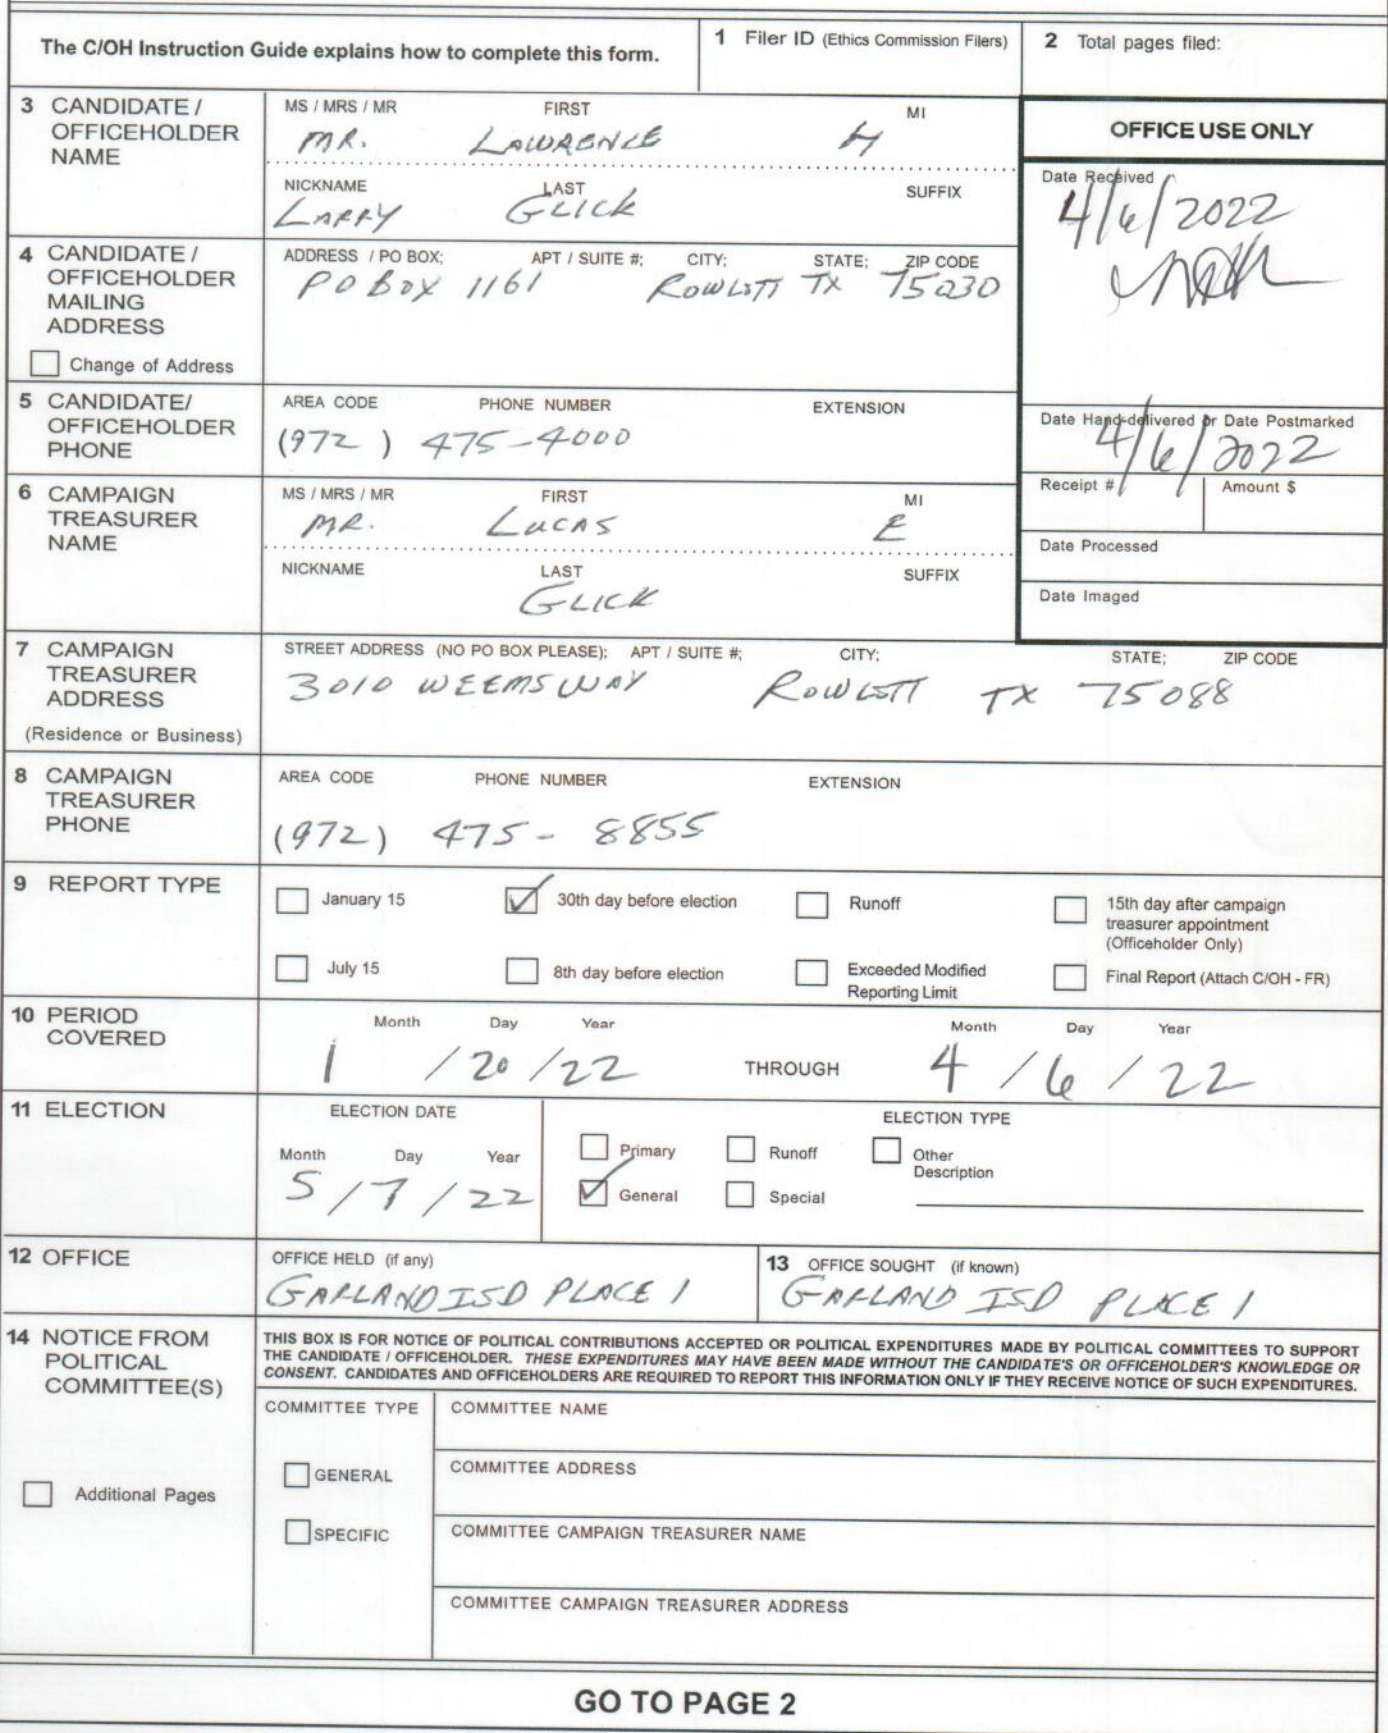 The C/OH Instruction Guide explains how to complete this form.
1 Filer ID (Ethics Commission Filers)
2 Total pages filed:
3 CANDIDATE / OFFICEHOLDER NAME
MS / MRS / MR FIRST MI
MR. LAWRENCE H
NICKNAME LAST SUFFIX
LARRY GLICK
OFFICE USE ONLY
Date Received
4/6/2022
4 CANDIDATE / OFFICEHOLDER MAILING ADDRESS
Change of Address
ADDRESS / PO BOX; APT / SUITE #; CITY; STATE; ZIP CODE
PO BOX 1161 ROWLETT TX 75030
5 CANDIDATE/ OFFICEHOLDER PHONE
AREA CODE PHONE NUMBER EXTENSION
(972) 475-4000
Date Hand-delivered or Date Postmarked
4/6/2022
Receipt # Amount $
Date Processed
Date Imaged
6 CAMPAIGN TREASURER NAME
MS / MRS / MR FIRST MI
MR. LUCAS E
NICKNAME LAST SUFFIX
GLICK
7 CAMPAIGN TREASURER ADDRESS
(Residence or Business)
STREET ADDRESS (NO PO BOX PLEASE); APT / SUITE #; CITY; STATE; ZIP CODE
3010 WEEMS WAY ROWLETT TX 75088
8 CAMPAIGN TREASURER PHONE
AREA CODE PHONE NUMBER EXTENSION
(972) 475-8855
9 REPORT TYPE
January 15
30th day before election
Runoff
15th day after campaign treasurer appointment (Officeholder Only)
July 15
8th day before election
Exceeded Modified Reporting Limit
Final Report (Attach C/OH - FR)
10 PERIOD COVERED
Month Day Year Month Day Year
1 / 20 / 22 THROUGH 4 / 6 / 22
11 ELECTION
ELECTION DATE
Month Day Year
5 / 7 / 22
ELECTION TYPE
Primary Runoff Other Description
General Special
12 OFFICE
OFFICE HELD (if any)
GARLAND ISD PLACE 1
13 OFFICE SOUGHT (if known)
GARLAND ISD PLACE 1
14 NOTICE FROM POLITICAL COMMITTEE(S)
THIS BOX IS FOR NOTICE OF POLITICAL CONTRIBUTIONS ACCEPTED OR POLITICAL EXPENDITURES MADE BY POLITICAL COMMITTEES TO SUPPORT
THE CANDIDATE / OFFICEHOLDER. THESE EXPENDITURES MAY HAVE BEEN MADE WITHOUT THE CANDIDATE'S OR OFFICEHOLDER'S KNOWLEDGE OR
CONSENT. CANDIDATES AND OFFICEHOLDERS ARE REQUIRED TO REPORT THIS INFORMATION ONLY IF THEY RECEIVE NOTICE OF SUCH EXPENDITURES.
Additional Pages
COMMITTEE TYPE
GENERAL
SPECIFIC
COMMITTEE NAME
COMMITTEE ADDRESS
COMMITTEE CAMPAIGN TREASURER NAME
COMMITTEE CAMPAIGN TREASURER ADDRESS
GO TO PAGE 2